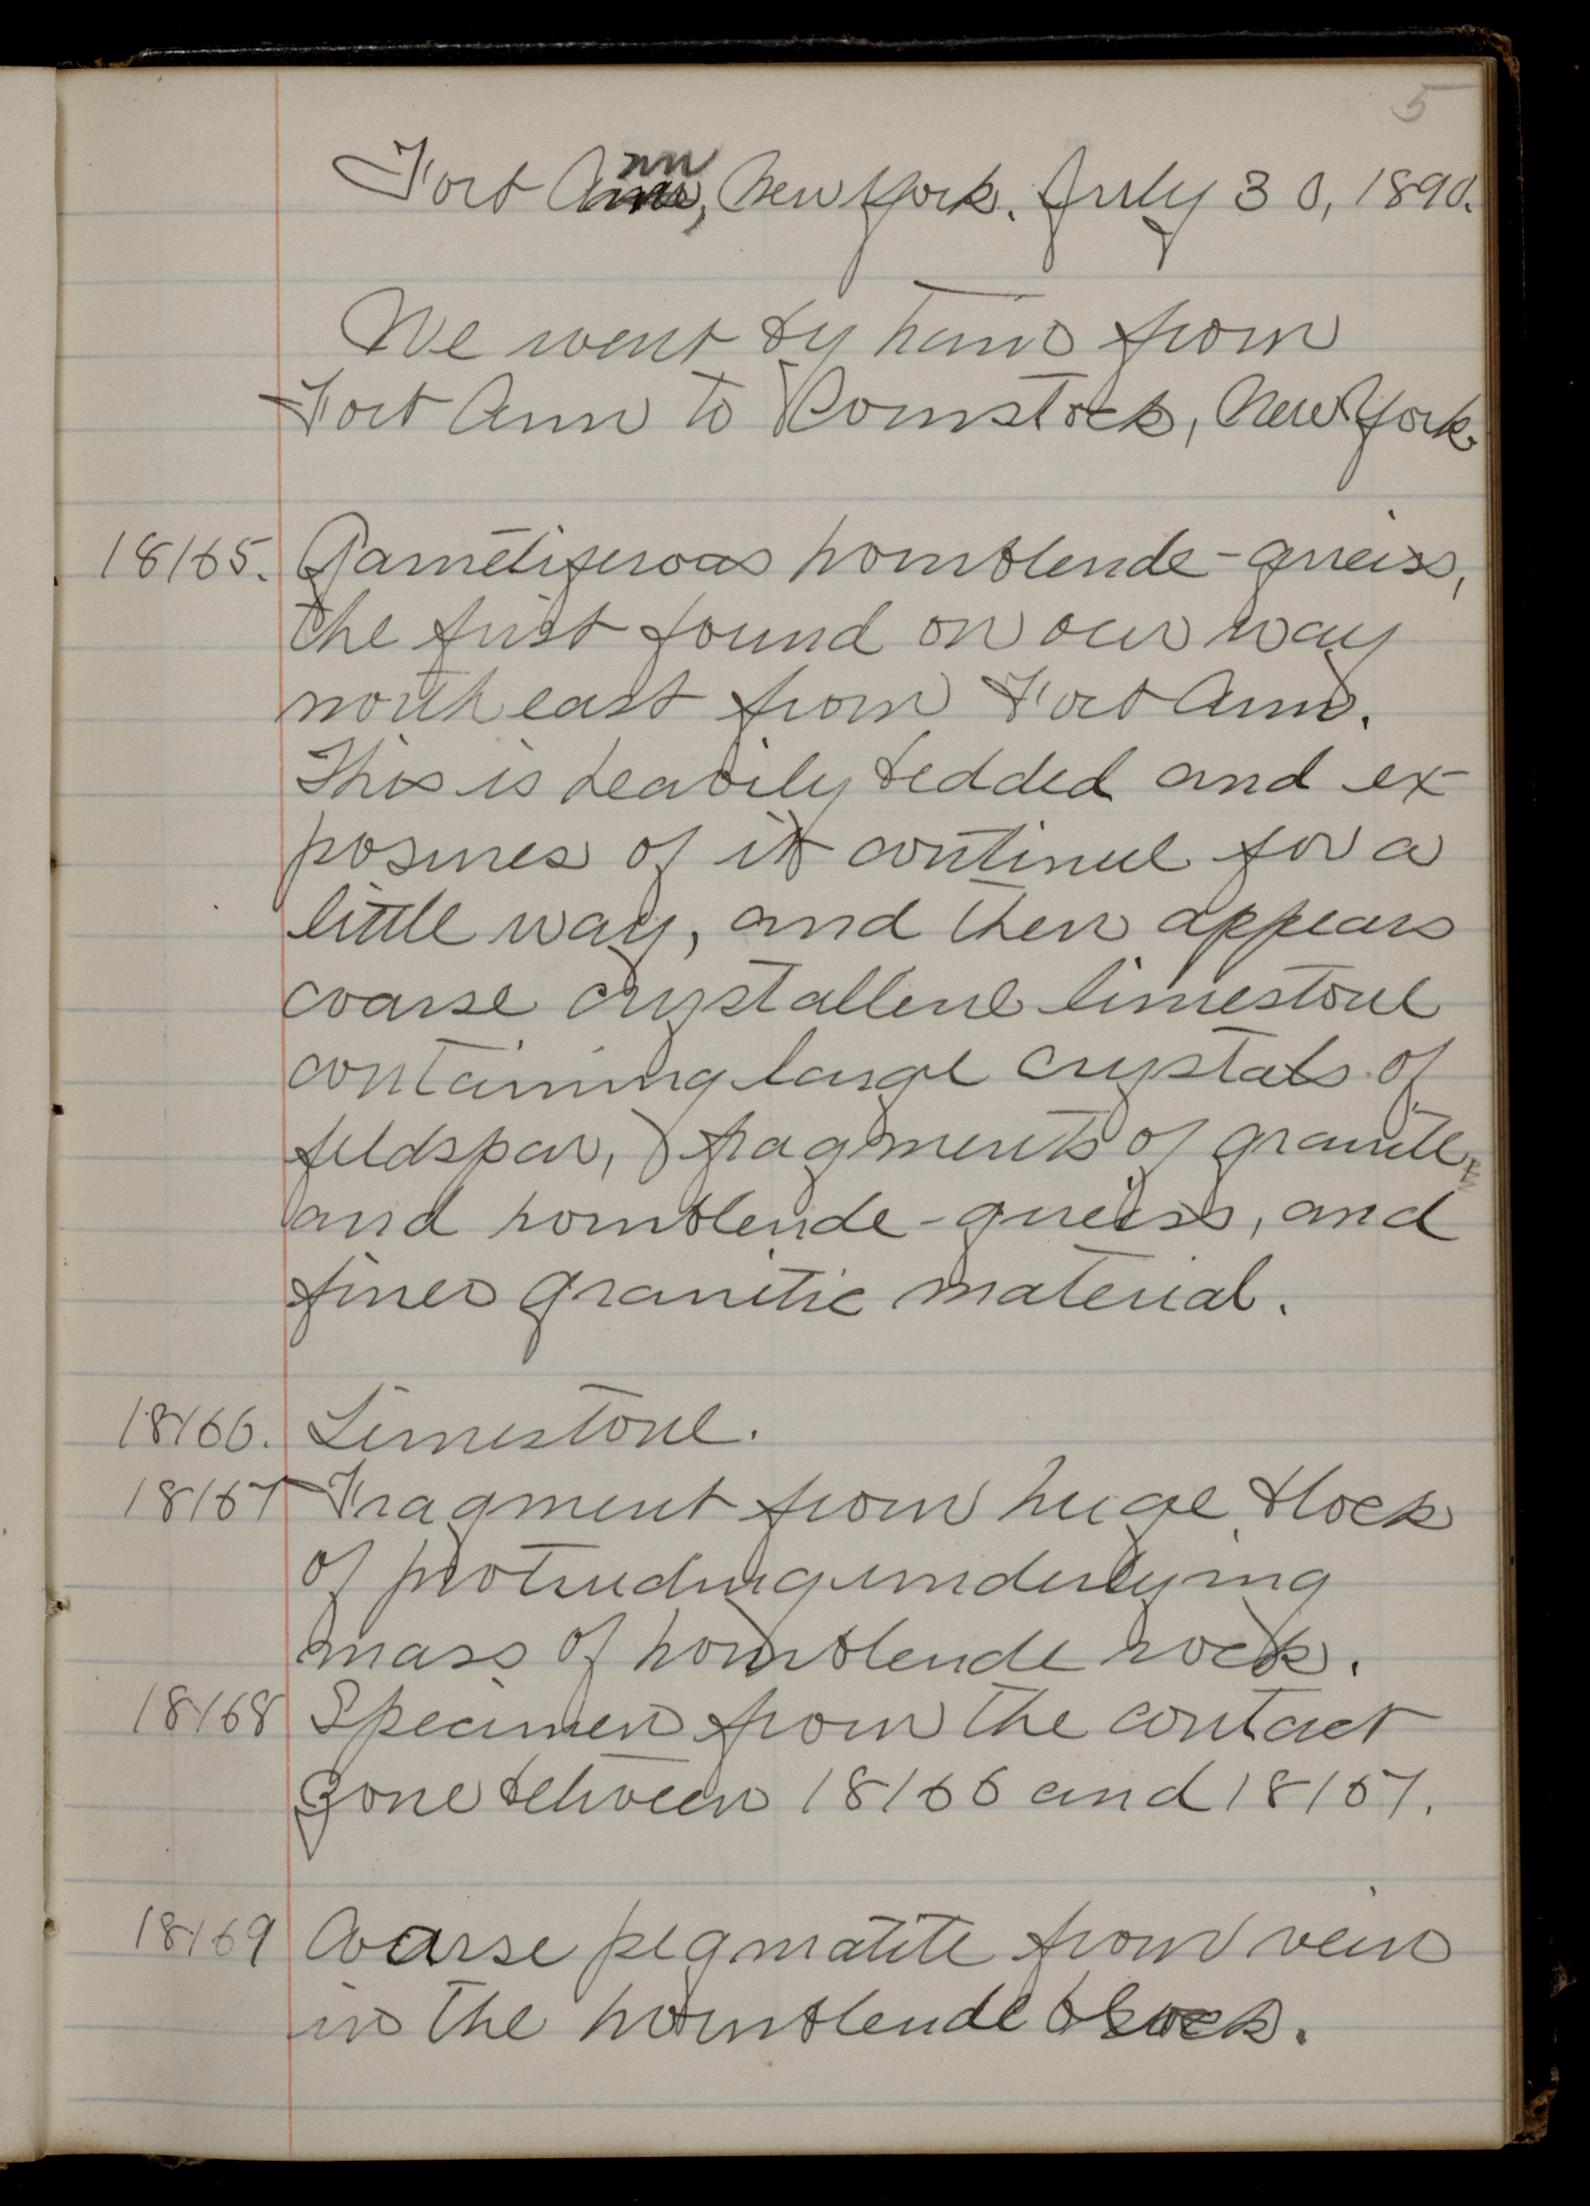 5
Fort Ann, New York. July 30, 1890.
We went by train from
Fort Ann to Comstock, New York.
18165. Garnetiferous hornblende-gneiss,
the first found on our way
northeast from Fort Ann.
This is heavily bedded and ex-
posures of it continue for a
little way, and then appears
coarse crystalline limestone
containing large crystals of
feldspar, fragments of granite
and hornblende-gneiss, and
finer granitic material.
18166. Limestone.
18167 Fragment from huge block
of protruding underlying
mass of hornblende rock.
18168 Specimen from the contact
zone between 18166 and 18167.
18169 Coarse pegmatite from vein
in the hornblende block.